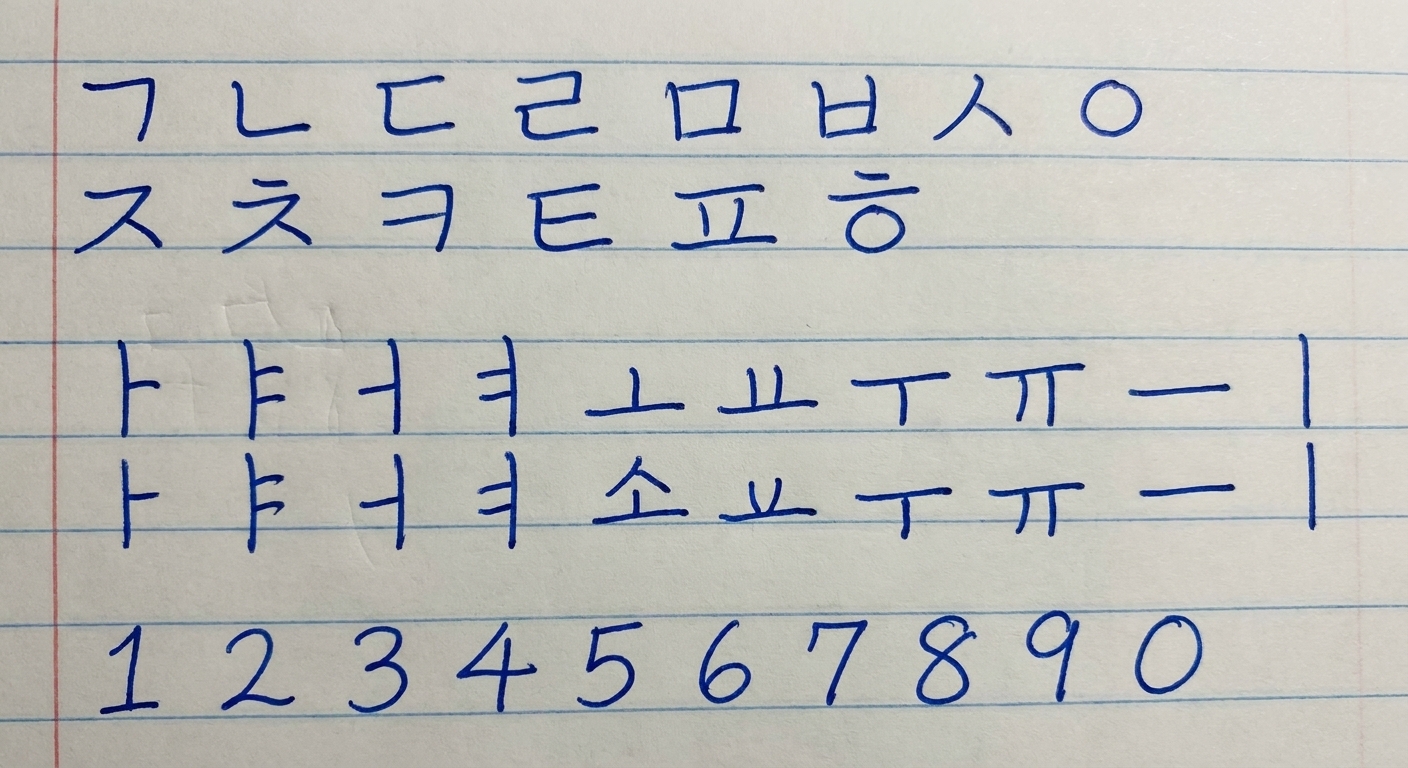 ㄱ ㄴ ㄷ ㄹ ㅁ ㅂ ㅅ ㅇ
ㅈ ㅊ ㅋ ㅌ ㅍ ㅎ
ㅏ ㅑ ㅓ ㅕ ㅗ ㅛ ㅜ ㅠ ㅡ ㅣ
ㅏ ㅑ ㅓ ㅕ 소 ㅛ ㅜ ㅠ ㅡ ㅣ
1 2 3 4 5 6 7 8 9 0